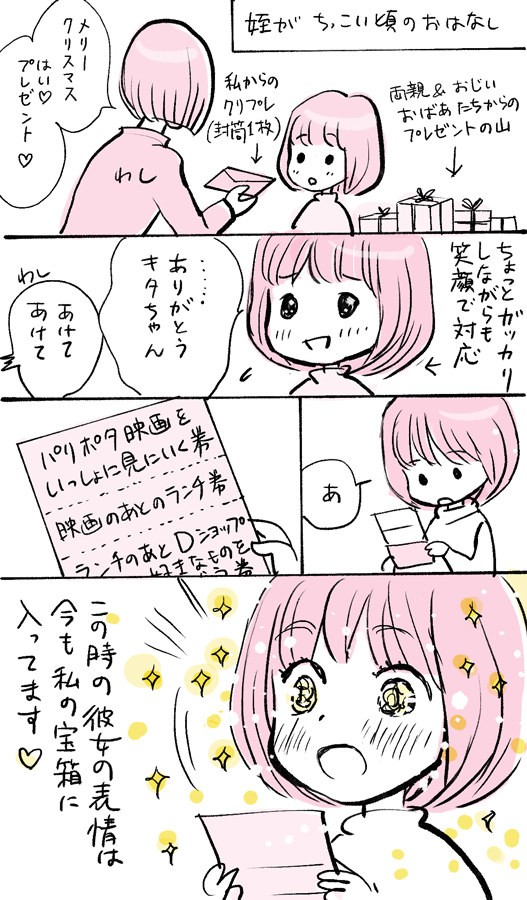 姪がちっこい頃のおはなし
メリー
クリスマス
はい♡
プレゼント♡
わし
私からの
クリプレ
(封筒1枚)
両親&おじい
おばあたちからの
プレゼントの山
ちょっとガッカリ
しながらも
笑顔で対応
……
ありがとう
キタちゃん
わし
あけて
あけて
あ
パリポタ映画を
いっしょに見にいく券
映画のあとのランチ券
ランチのあとDショップ
好きなものを
この時の彼女の表情は
今も私の宝箱に
入ってます♡